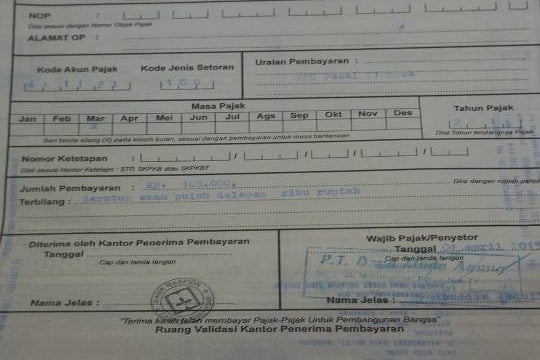 NOP :
Diisi sesuai dengan Nomor Objek Pajak
ALAMAT OP :
Kode Akun Pajak Kode Jenis Setoran Uraian Pembayaran :
Masa Pajak Tahun Pajak
Jan Feb Mar Apr Mei Jun Jul Ags Sep Okt Nov Des
X
Beri tanda silang (X) pada kolom bulan, sesuai dengan pembayaran untuk masa berkenaan
Diisi Tahun terutangnya Pajak
Nomor Ketetapan : / / / /
Diisi sesuai Nomor Ketetapan : STP, SKPKB atau SKPKBT
Jumlah Pembayaran : Rp. 168.000, Diisi dengan rupiah
Terbilang : Seratus enam puluh delapan ribu rupiah
Diterima oleh Kantor Penerima Pembayaran
Tanggal
Cap dan tanda tangan
Nama Jelas :
Wajib Pajak/Penyetor
Tanggal april
Cap dan tanda tangan
P.T. Agung
Nama Jelas :
"Terima kasih telah membayar Pajak-Pajak Untuk Pembangunan Bangsa"
Ruang Validasi Kantor Penerima Pembayaran